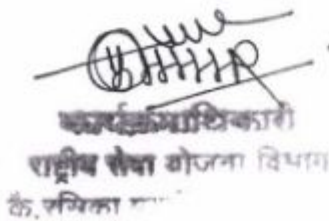 कार्यक्रमाधिकारी
राष्ट्रीय सेवा योजना विभाग
कै. रमिका